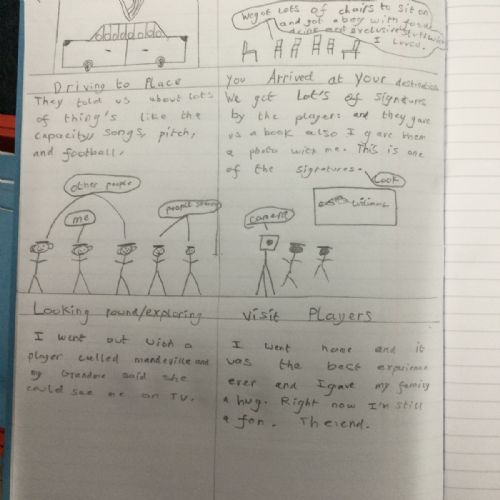 We got lots of chairs to sit on
and got a bag with food
drink and exclusive
I loved.
Driving to Place
You Arrived at your destination
They told us about lots
of thing's like the
capacity, songs, pitch,
and football.
We got Lot's of signatures
by the players and they gave
us a book also I gave them
a photo with me. This is one
of the signatures.
Look
other people
me
people
camera
Williams
Looking round/exploring
Visit Players
I went out with a
player called mandeville and
my Grandma said she
could see me on TV.
I went home and it
was the best experience
ever and I gave my family
a hug. Right now I'm still
a fan. The end.